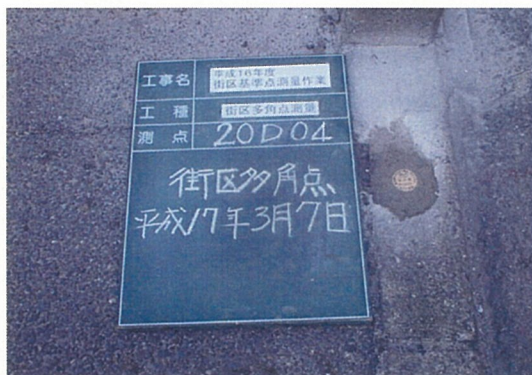 工事名
平成16年度
街区基準点測量作業
工種
街区多角点測量
測点
20D04
街区多角点
平成17年3月7日